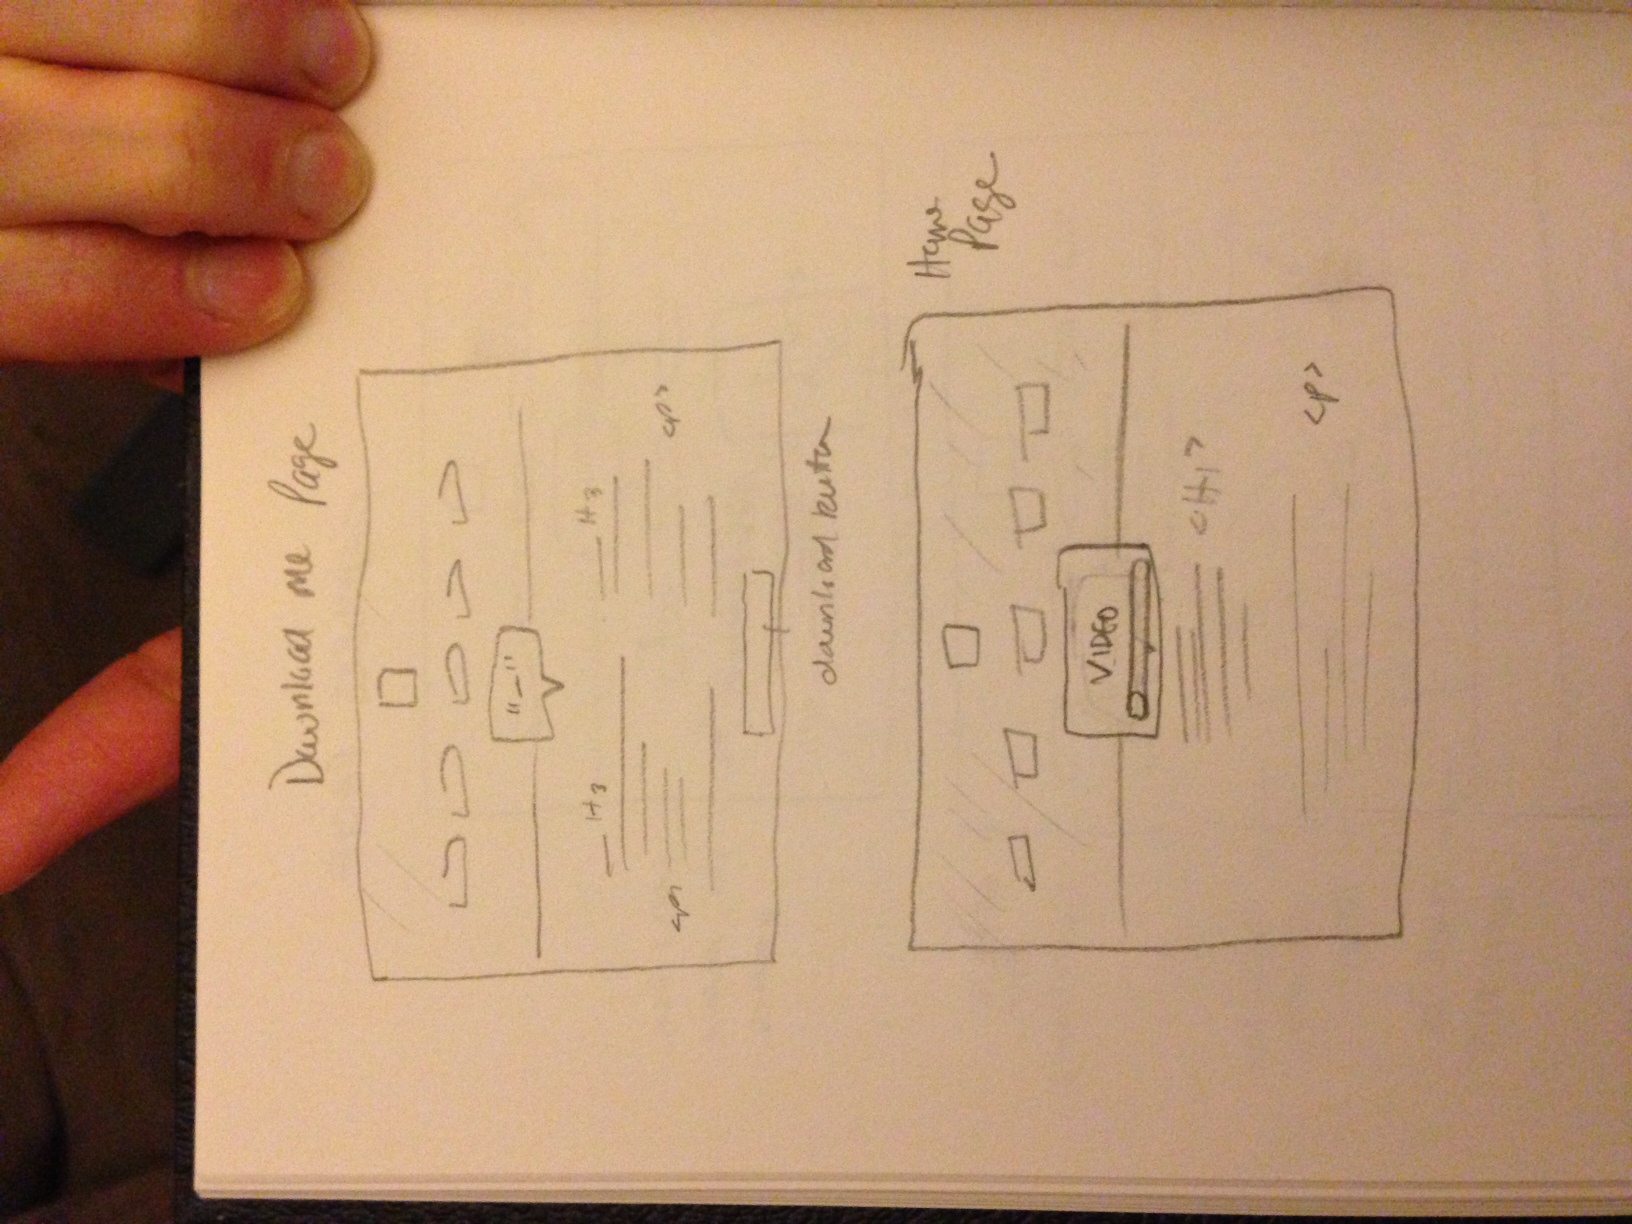 Download me Page
"_"
H3 H3
<p> <p>
download button
Home
Page
VIDEO
<H1>
<p>